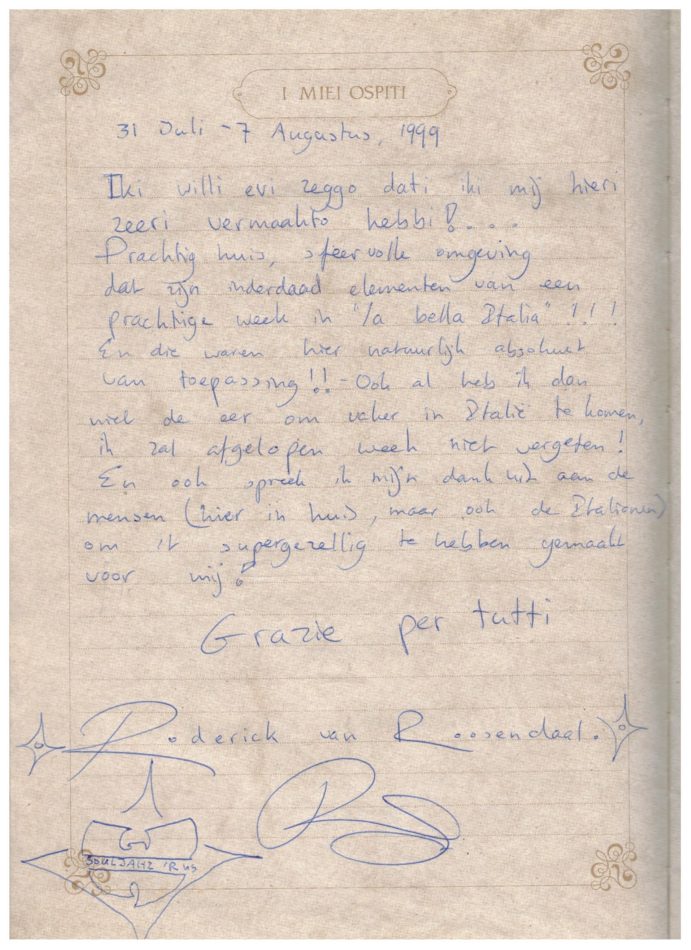 I MIEI OSPITI
31 Juli - 7 Augustus, 1999
Iki willi evi zeggo dati iki mij hieri
zeeri vermaakto hebbi!....
Prachtig huis, sfeervolle omgeving
dat zijn inderdaad elementen van een
prachtige week in "la bella Italia"!!!
En die waren hier natuurlijk absoluut
van toepassing!! - Ook al heb ik dan
niet de eer om vaker in Italië te komen,
ik zal afgelopen week niet vergeten!
En ook spreek ik mijn dank uit aan de
mensen (hier in huis, maar ook de Italianen)
om it supergezellig te hebben gemaakt
voor mij!
Grazie per tutti
Roderick van Roosendaal.
SOULJAHZ 'R US